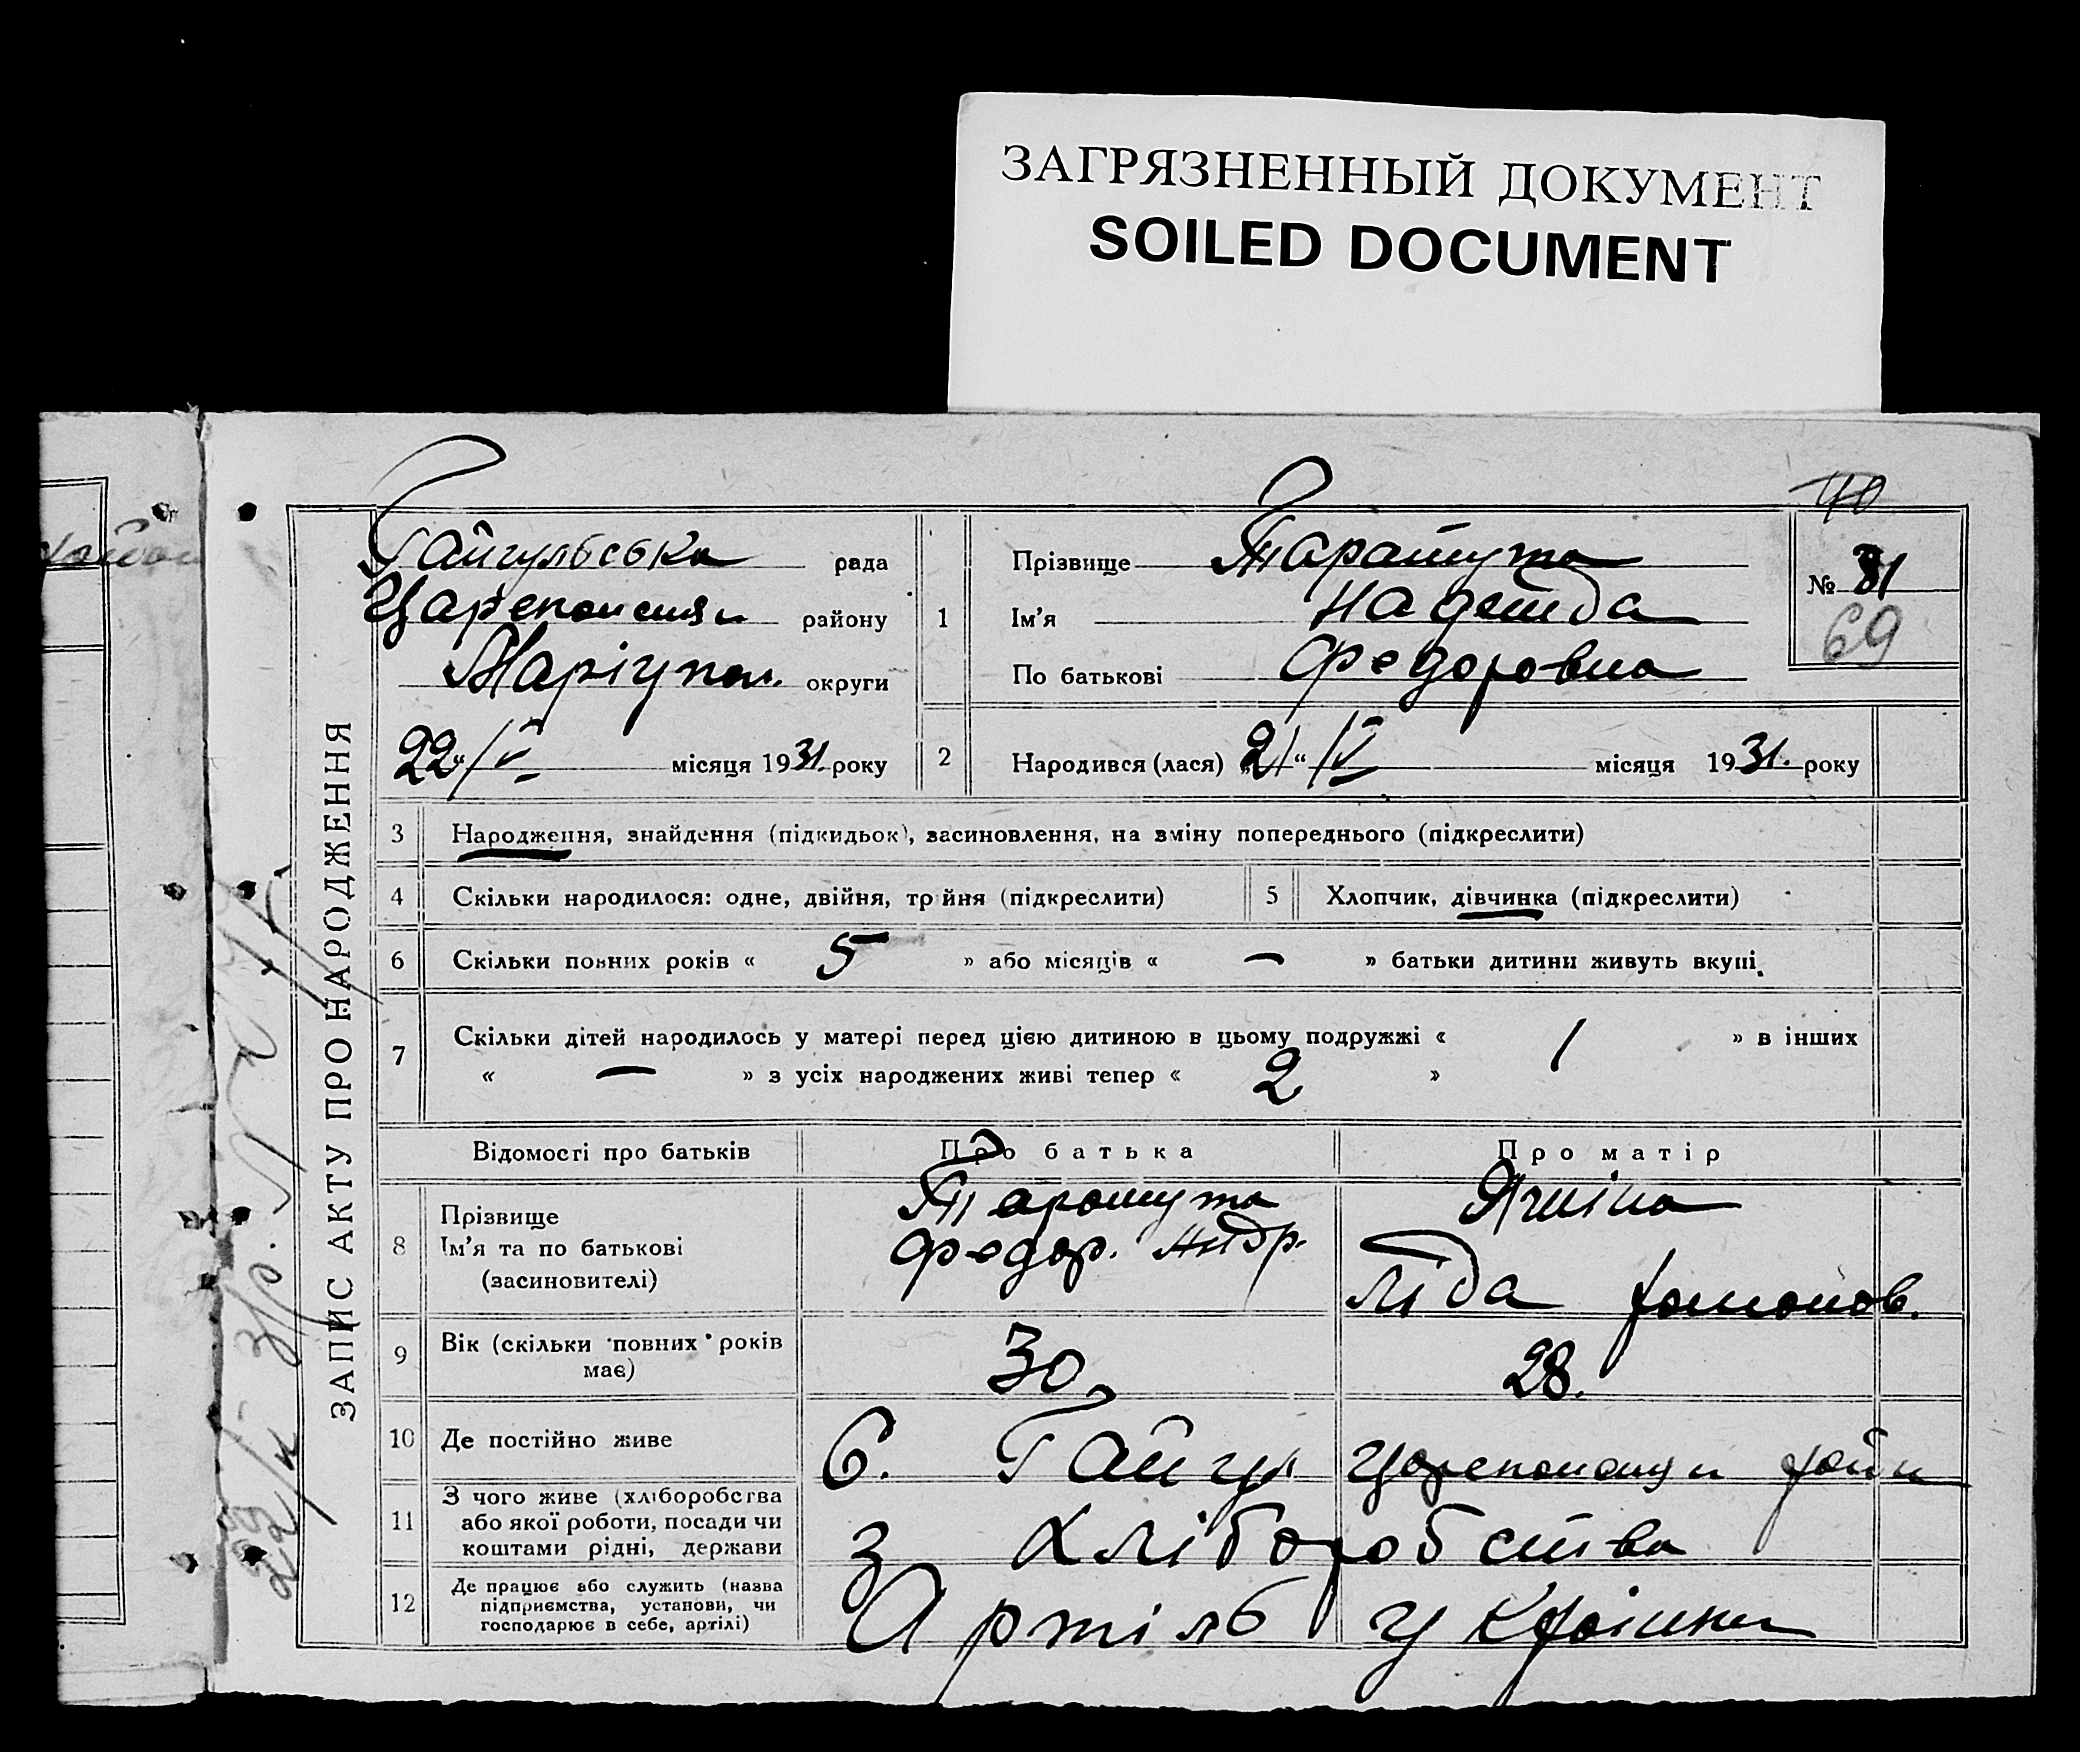 ЗАГРЯЗНЕННЫЙ ДОКУМЕНТ
SOILED DOCUMENT
ЗАПИС АКТУ ПРО НАРОДЖЕННЯ
Гайчульська рада
району
Маріупол. округи
22 " / V місяця 1931 року
1
Прізвище Тарашута
Ім'я Надежда
По батькові Федоровна
40
№ 81
69
2 Народився (лася) „21“ / V місяця 1931. року
3 Народження, знайдення (підкидьок), засиновлення, на зміну попереднього (підкреслити)
4 Скільки народилося: одне, двійня, трійня (підкреслити) 5 Хлопчик, дівчинка (підкреслити)
6 Скільки повних років « 5 » або місяців « — » батьки дитини живуть вкупі.
7 Скільки дітей народилось у матері перед цією дитиною в цьому подружжі « 1 » в інших
« — » з усіх народжених живі тепер « 2 »
Відомості про батьків Про батька Про матір
8 Прізвище
Ім'я та по батькові
(засиновителі)
Тарашута
Федор. Андр.
Ліда
9 Вік (скільки повних років
має)
30
28.
10 Де постійно живе С. Гайчул
11 З чого живе (хліборобства
або якої роботи, посади чи
коштами рідні, держави
З хліборобства
12 Де працює або служить (назва
підприємства, установи, чи
господарює в себе, артілі)
Артіль